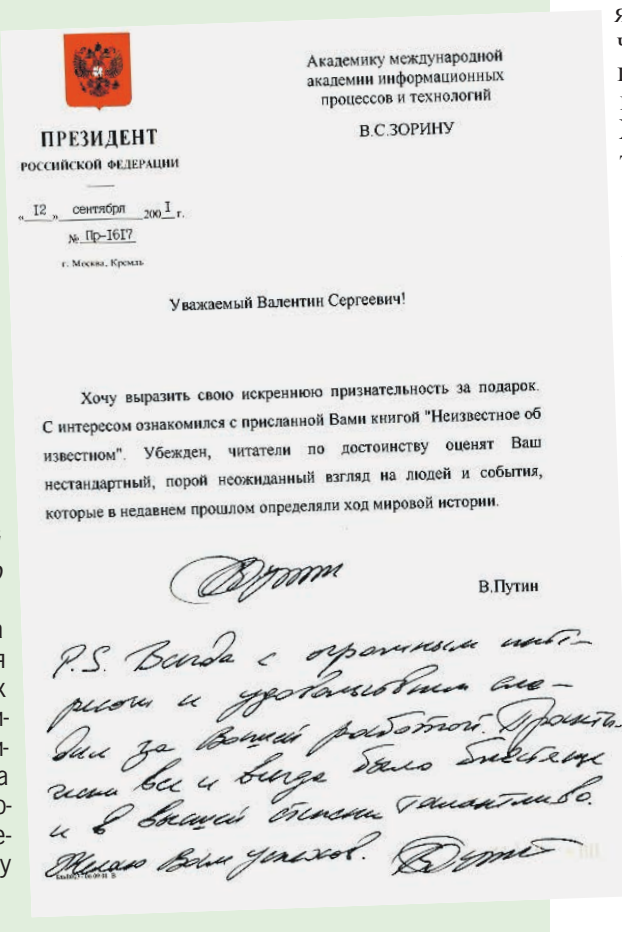 Академику международной
академии информационных
процессов и технологий
В.С.ЗОРИНУ
ПРЕЗИДЕНТ
РОССИЙСКОЙ ФЕДЕРАЦИИ
„ 12 „ сентября 2001 г.
№ Пр-1617
г. Москва, Кремль
Уважаемый Валентин Сергеевич!
Хочу выразить свою искреннюю признательность за подарок.
С интересом ознакомился с присланной Вами книгой "Неизвестное об
известном". Убежден, читатели по достоинству оценят Ваш
нестандартный, порой неожиданный взгляд на людей и события,
которые в недавнем прошлом определяли ход мировой истории.
В.Путин
P.S. Всегда с огромным инте-
ресом и удовольствием сле-
дил за Вашей работой. Практи-
чески все и всегда было блестяще
и в высшей степени талантливо.
Желаю Вам успехов.